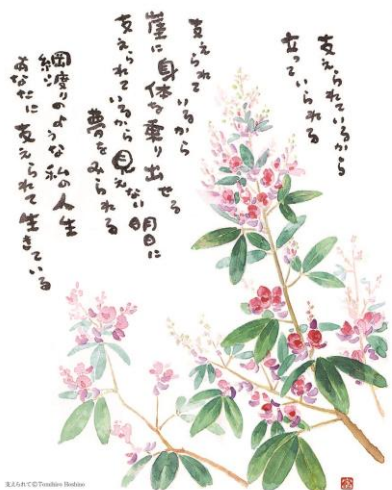 支えられているから
立っていられる
支えられているから
崖に身体を乗り出せる
支えられているから見えない明日に
夢をみられる
綱渡りのような私の人生
あなたに支えられて生きている
支えられて©Tomihiro Hoshino